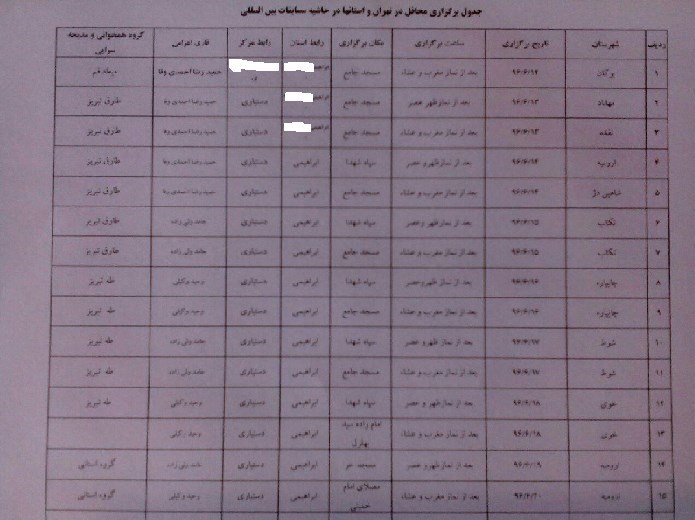 جدول برگزاری محافل در تهران و استانها در حاشیه مسابقات بین المللی
ردیف شهرستان تاریخ برگزاری ساعت برگزاری مکان برگزاری رابط استان رابط مرکز قاری اعزامی گروه همخوانی و مدیحه سرایی
۱ بوکان ۹۶/۶/۱۲ بعد از نماز مغرب و عشاء مسجد جامع حمید رضا احمدی وفا میعاد قم
۲ مهاباد ۹۶/۶/۱۳ بعد از نماز ظهر عصر مسجد جامع دستیاری حمید رضا احمدی وفا طارق تبریز
۳ نقده ۹۶/۶/۱۳ بعد از نماز مغرب و عشاء مسجد جامع دستیاری حمید رضا احمدی وفا طارق تبریز
۴ ارومیه ۹۶/۶/۱۴ بعد از نماز ظهر و عصر سپاه شهدا ابراهیمی دستیاری حمید رضا احمدی وفا طارق تبریز
۵ شاهین دژ ۹۶/۶/۱۴ بعد از نماز مغرب و عشاء مسجد جامع ابراهیمی دستیاری حمید رضا احمدی وفا طارق تبریز
۶ تکاب ۹۶/۶/۱۵ بعد از نماز ظهر و عصر سپاه شهدا ابراهیمی دستیاری حامد ولی زاده طارق تبریز
۷ تکاب ۹۶/۶/۱۵ بعد از نماز مغرب و عشاء مسجد جامع ابراهیمی دستیاری حامد ولی زاده طارق تبریز
۸ چایپاره ۹۶/۶/۱۶ بعد از نماز ظهر و عصر سپاه شهدا ابراهیمی دستیاری وحید وکیلی طه تبریز
۹ چایپاره ۹۶/۶/۱۶ بعد از نماز مغرب و عشاء مسجد جامع ابراهیمی دستیاری وحید وکیلی طه تبریز
۱۰ شوط ۹۶/۶/۱۷ بعد از نماز ظهر و عصر سپاه شهدا ابراهیمی دستیاری حامد ولی زاده طه تبریز
۱۱ شوط ۹۶/۶/۱۷ بعد از نماز مغرب و عشاء مسجد جامع ابراهیمی دستیاری حامد ولی زاده طه تبریز
۱۲ خوی ۹۶/۶/۱۸ بعد از نماز ظهر و عصر سپاه شهدا ابراهیمی دستیاری وحید وکیلی طه تبریز
۱۳ خوی ۹۶/۶/۱۸ بعد از نماز مغرب و عشاء امام زاده سید بهلول ابراهیمی دستیاری وحید وکیلی
۱۴ ارومیه ۹۶/۶/۱۹ بعد از نماز ظهر و عصر مسجد ابراهیمی دستیاری حامد ولی زاده گروه استانی
۱۵ ارومیه ۹۶/۶/۲۰ بعد از نماز مغرب و عشاء مصلای امام خمینی ابراهیمی دستیاری وحید وکیلی گروه استانی